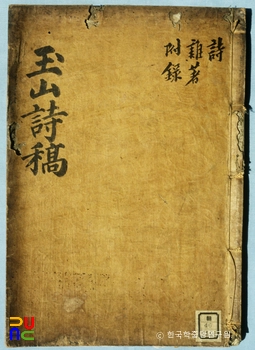 玉山詩稿
詩
雜著
附錄
© 한국학중앙연구원